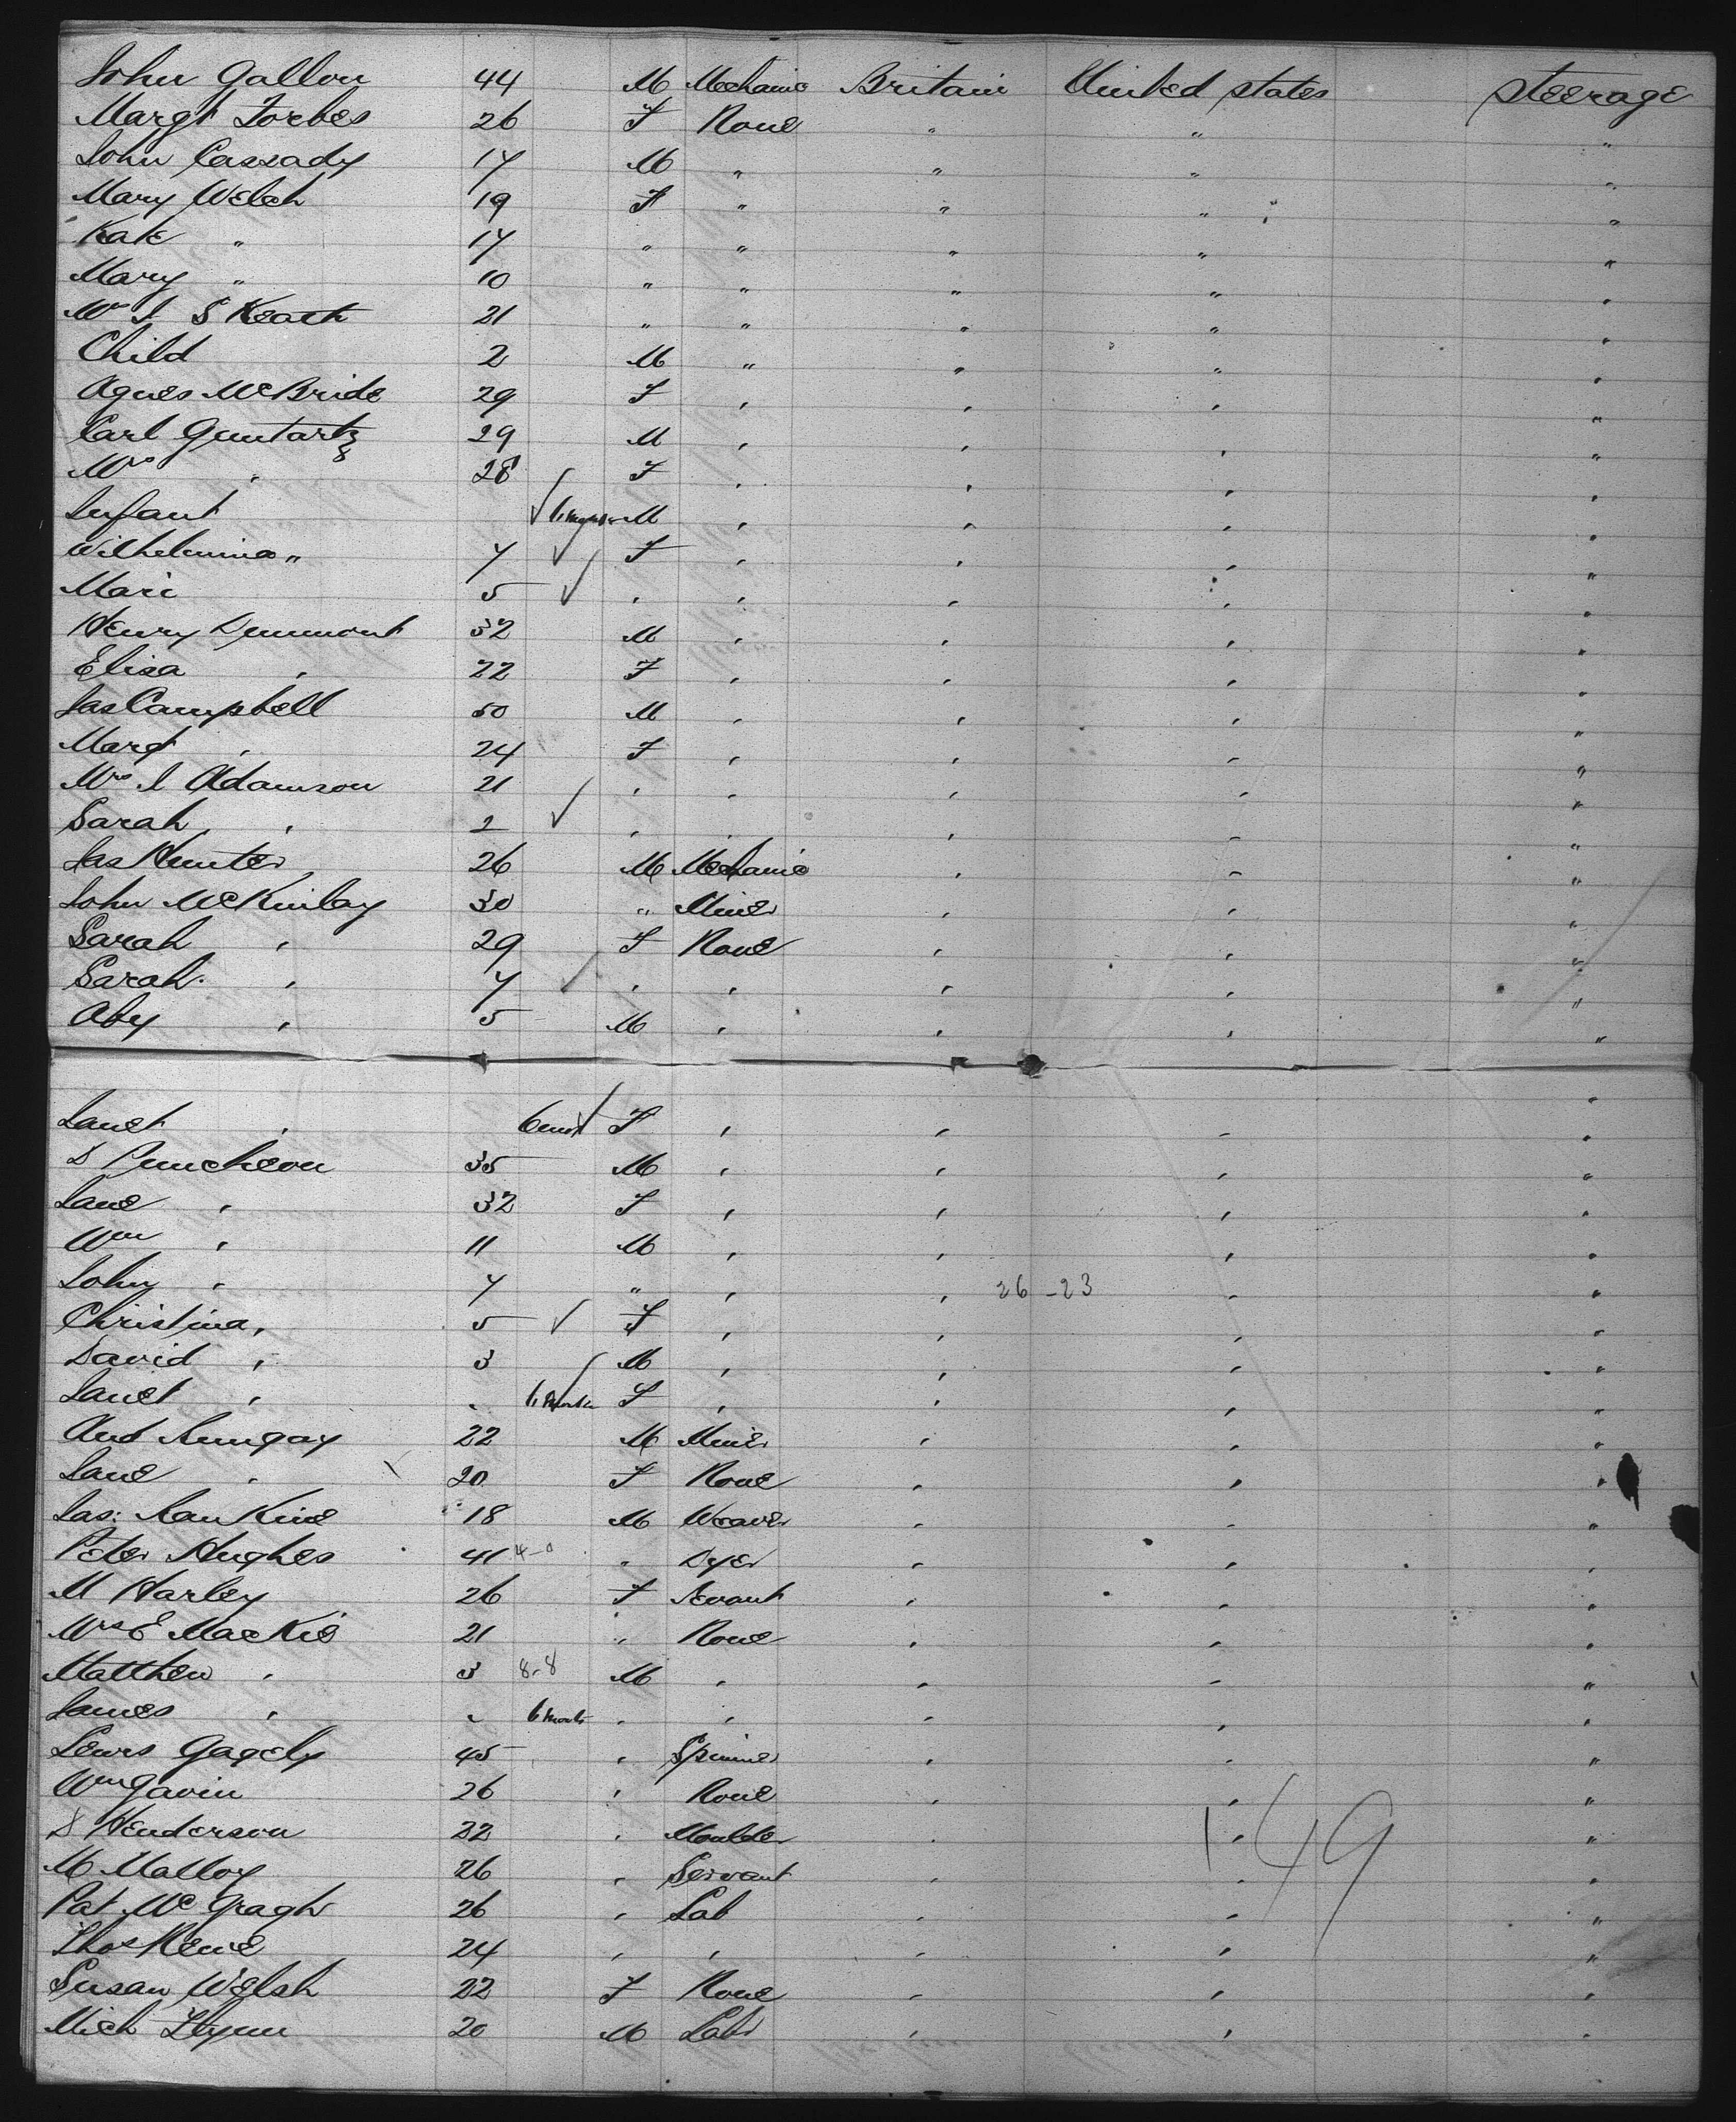 John Gallon 44 M Mechanic Britain United States Steerage
Margt Forbes 26 F None " " "
John Cassady 17 M " " " "
Mary Welch 19 F " " " "
Kate " 17 " " " " "
Mary " 10 " " " " "
Mrs J S Keach 21 " " " " "
Child 2 M " " " "
Agnes McBride 29 F " " " "
Carl Guntartz 29 M " " " "
Mrs " 28 F " " " "
Infant M " " " "
Wilhelmina " 7 F " " " "
Mari 5 " " " " "
Henry Dummont 32 M " " " "
Elisa " 22 F " " " "
Jas Campbell 50 M " " " "
Margt " 24 F " " " "
Mrs J Adamson 21 " " " " "
Sarah " 2 " " " " "
Jas Hunter 26 M Mechanic " " "
John McKinlay 30 " Miner " " "
Sarah " 29 F None " " "
Sarah " 7 " " " " "
Aby " 5 M " " " "
Janet " 6 mos F " " " "
D Puncheon 35 M " " " "
Jane " 32 F " " " "
Wm " 11 M " " " "
John " 7 " " " 26-23 " "
Christina " 5 F " " " "
David " 3 M " " " "
Janet " " 6 Months F " " " "
And 22 M Miner " " "
Jane " 20 F None " " "
Jas: Rankine 18 M Weaver " " "
Peter Hughes 41 4-0 " Dyer " " "
M Harley 26 F Sevant " " "
Mrs E MacKie 21 " None " " "
Matthew " 3 8-8 M " " " "
James " " 6 Months " " " " "
Lewis Gagely 45 " Spinner " " "
Wm Gavin 26 " None " " "
D Henderson 22 " Moulder " " "
149
M Malloy 26 " Servant " " "
Pat McGragh 26 " Lab " " "
Thos 24 " " " " "
Susan Welsh 22 F None " " "
Mich Flynn 20 M Labr " " "